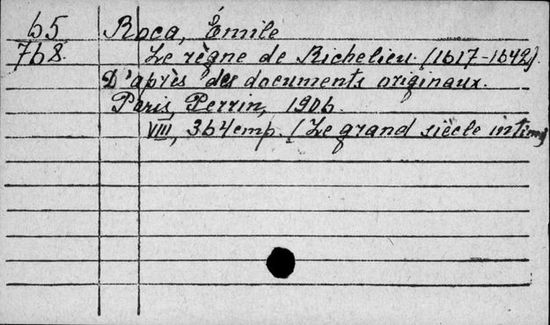 65 Roca, Émile
768. Le règne de Richelieu. (1617-1642).
D'après des documents originaux.
Paris, Perrin, 1906.
VIII, 364 p. (Le grand siècle intime)